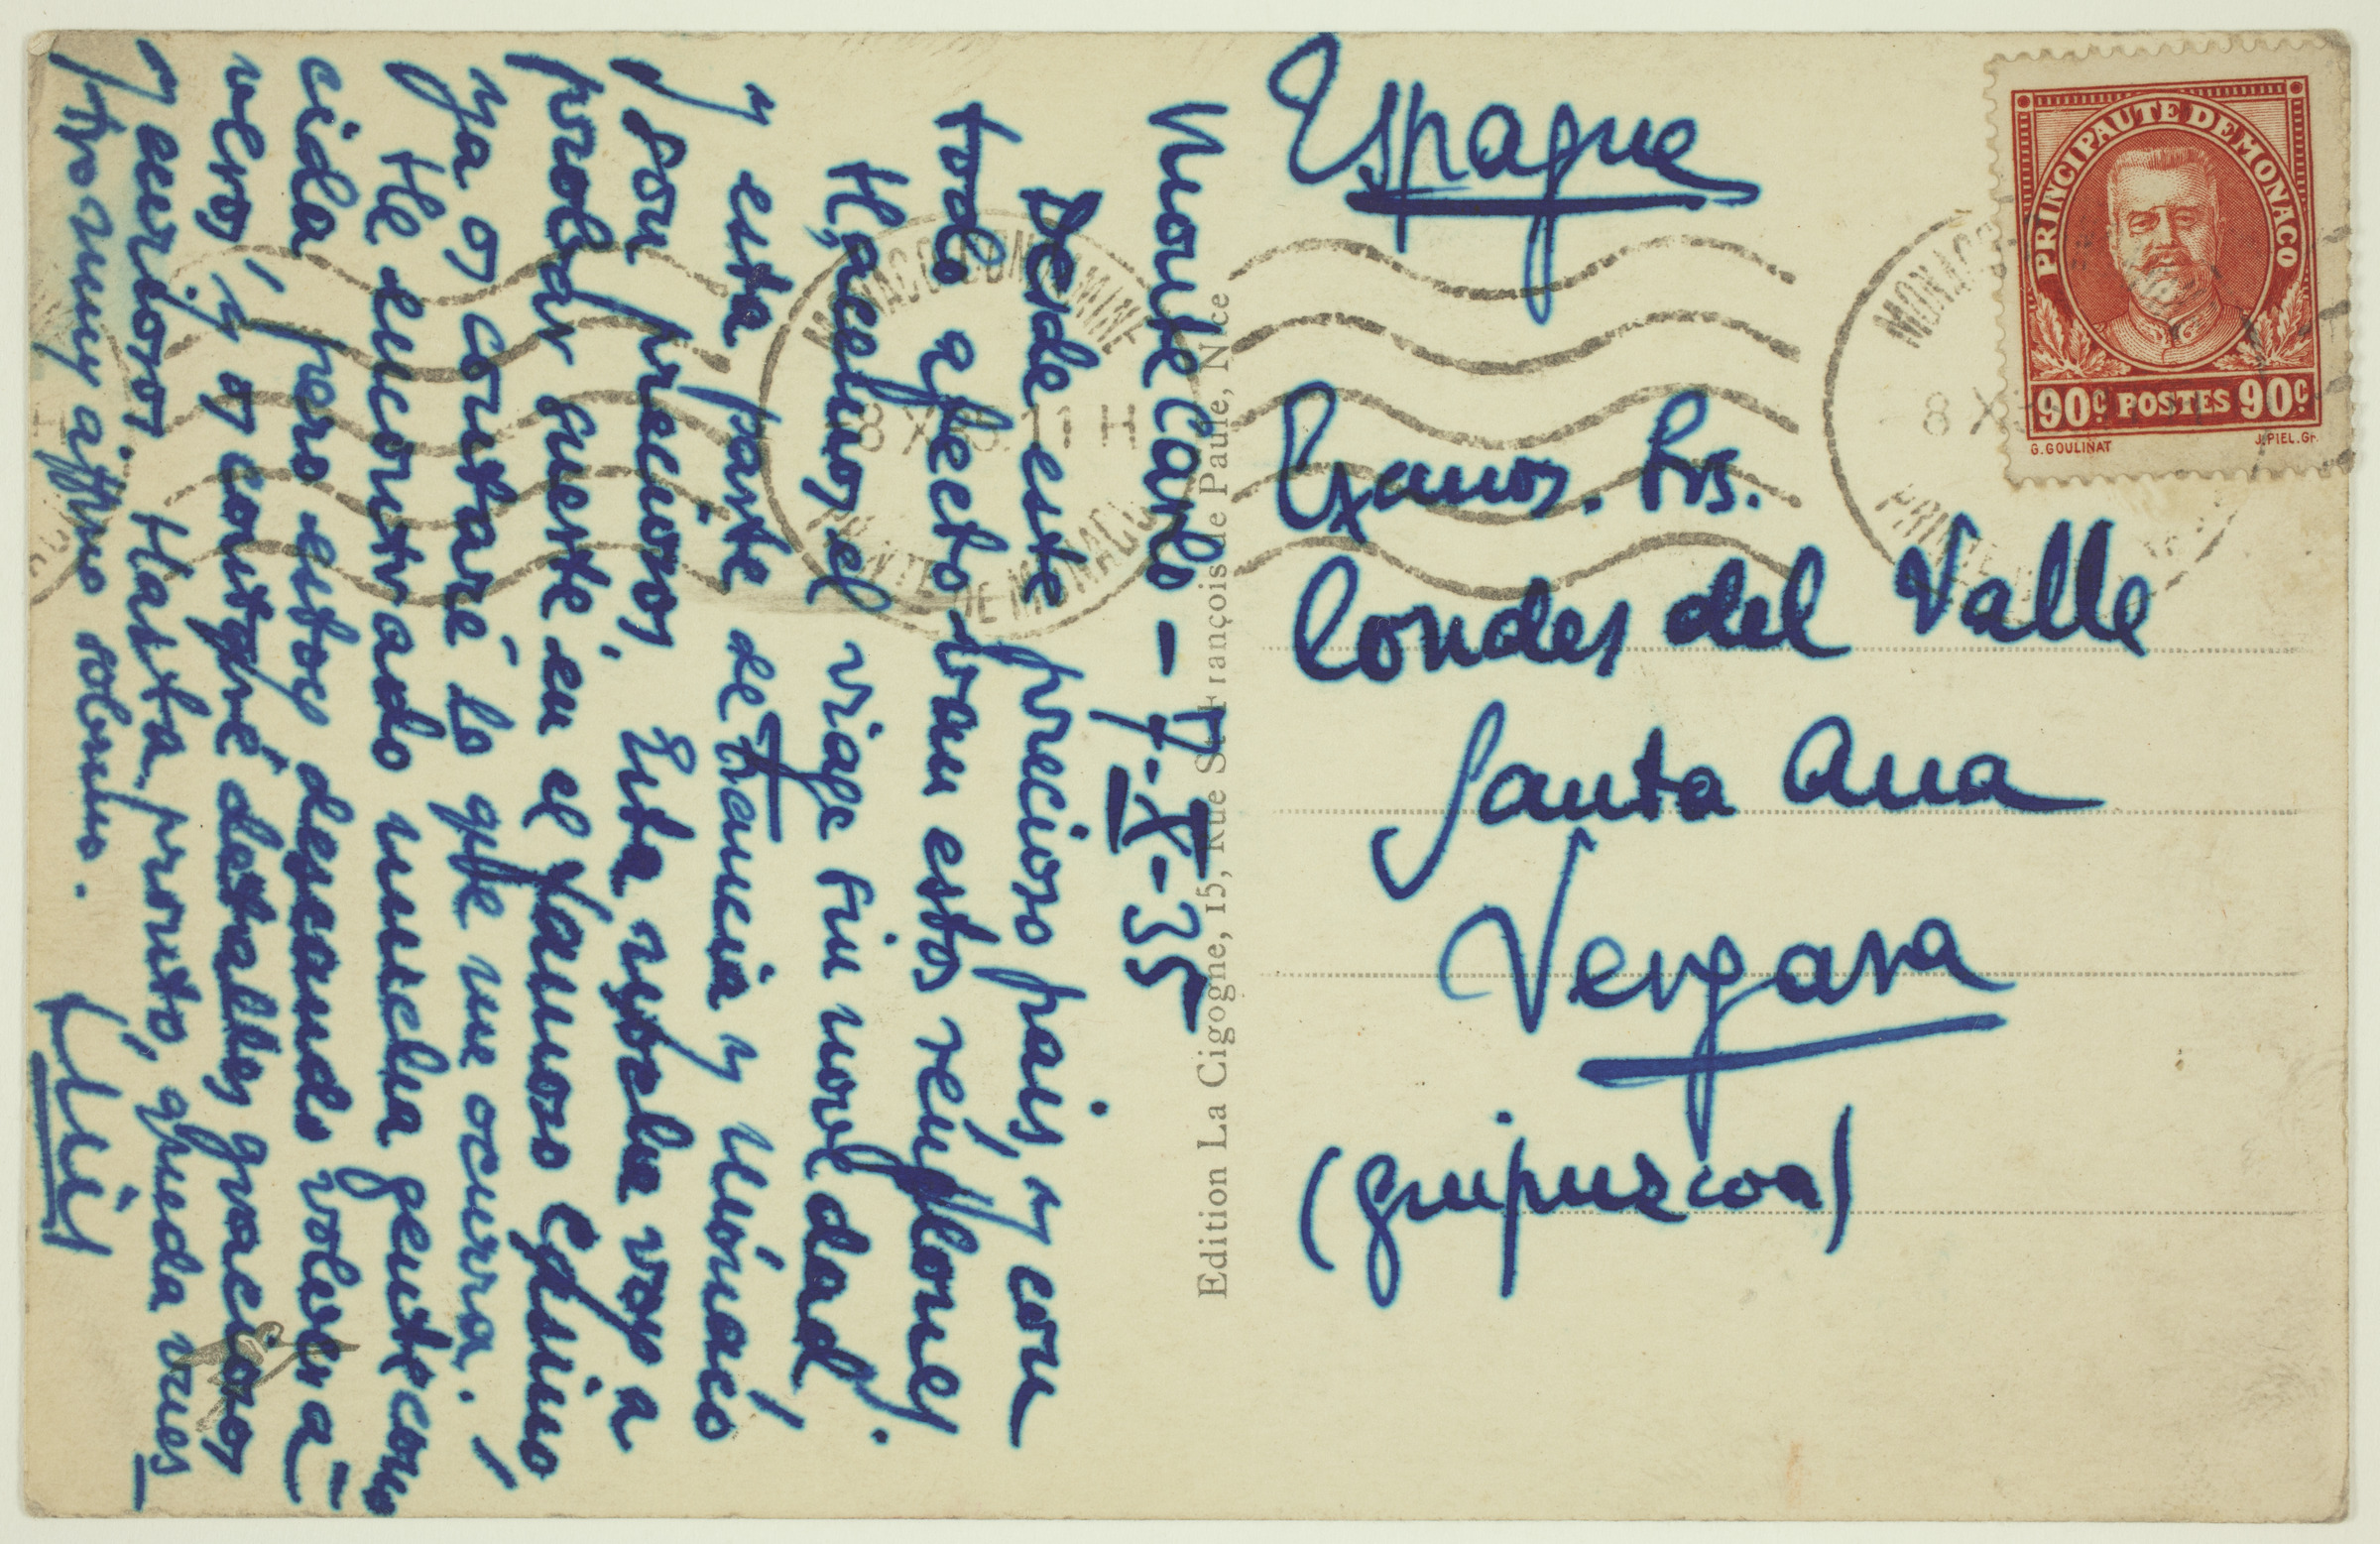 Monte Carlo - 7-X-35
Desde este precioso pais, y con
todo afecto van estos renglones.
Hacemos el viage sin novedad,
y esta parte de Francia y Mónaco
son preciosos, Esta noche voy a
probar suerte en el famoso Casino
ya os contaré lo que me ocurra.
He encontrado mucha gente cono
cida pero estoy deseando volver a
veros y os contaré detalles graciosos
y curiosos Hasta pronto, queda vues
tro muy affmo sobrino.
Luis
Edition La Cigogne, 15, Rue St-François de Paule, Nice
Espagne
Exmos. Srs.
Condes del Valle
Santa Ana
Vergara
(Guipuzcoa)
PRINCIPAUTE DE MONACO
90c POSTES 90c
G. GOULINAT J. PIEL. Gr.
MONACO
8 X
MONACO CONDAMINE
8 X 11 H
PRINTE DE MONACO